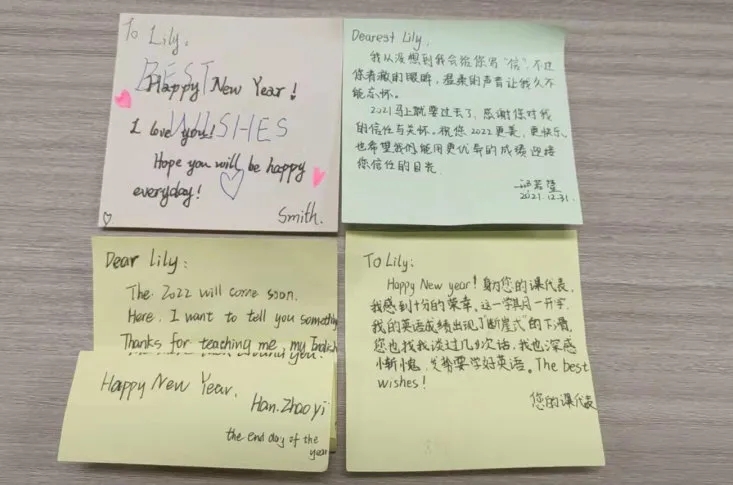 To Lily,
BEST
Happy New Year!
WISHES
I love you!
Hope you will be happy
everyday!
Smith.
Dearest Lily,
我从没想到我会给您写“信”,不过
您清澈的眼眸,温柔的声音让我久不
能忘怀。
2021马上就要过去了,感谢您对我
的信任与关怀。祝您2022更美,更快乐,
也希望我们能用更优异的成绩迎接
您信任的目光。
2021.12.31.
Dear Lily:
The 2022 will come soon.
Here, I want to tell you something
Thanks for teaching me, my English
around you.
Happy New Year.
Han.Zhaoyi
the end day of the
year
To Lily:
Happy New year! 身为您的课代表,
我感到十分的荣幸。这一学期一开学,
我的英语成绩出现了“断崖式”的下滑,
您也找我谈过几次话,我也深感
惭愧,发誓要学好英语。The best
wishes!
您的课代表